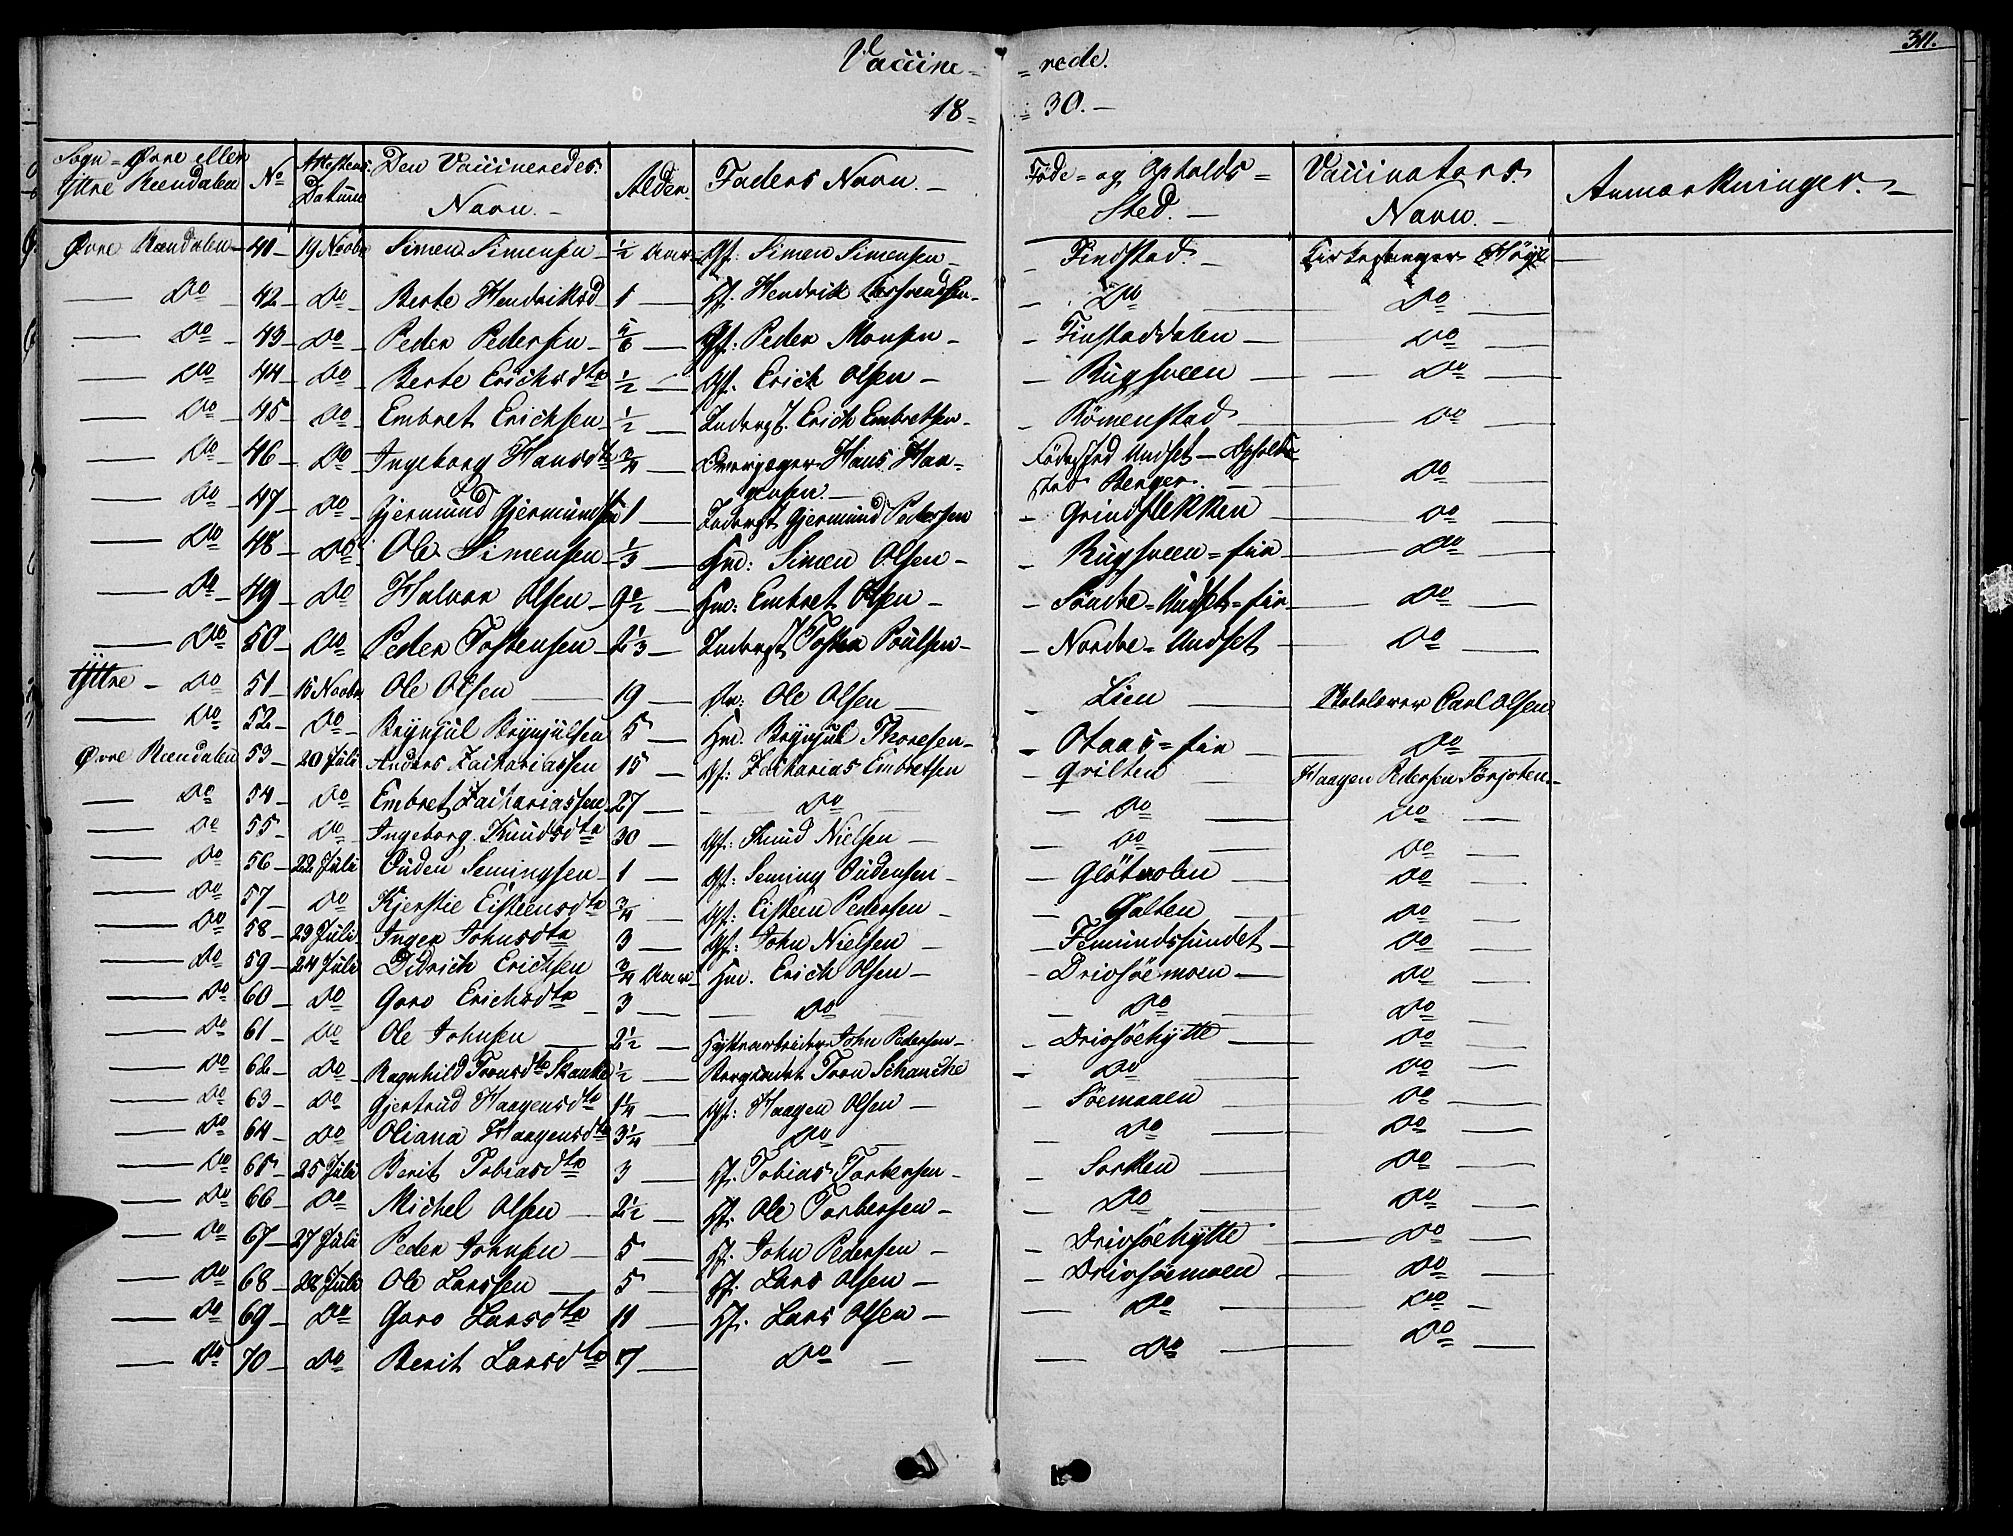 311.
Vaccine= =rede.
18= 30.-
Sogn=Øvre eller Yttre Rændalen | No | Attestens Datum | Den Vaccineredes Navn.- | Alder. | Faders Navn.- | Føde= og Opholds= Sted.- | Vaccinators Navn.- | Anmærkninger.-
Øvre Rændalen 41 19 Novbr Simen Simensen ½ Aar Gf: Simen Simensen Findstad. Kirkesanger Høye
Do 42 Do Berte Hendriksd 1 Hf. Hendrik Do Do
Do 43 Do Peder Pedersen 5/6 Gf: Peder Monsen Finstaddalen Do
Do 44 Do Berte Erichsdtr ½ Gf. Erich Olsen Rugsveen Do
Do 45 Do Embret Erichsen ½ Inderst. Erich Embretsen Römenstad Do
Do 46 Do Ingeborg Hansdtr ¾ Overjæger Hans Haagensen Födested Undset - Opholdssted Berger. Do
Do 47 Do Gjermund Gjermundsen 1 Inderst Gjermund Pedersen Grindflekken Do
Do 48 Do Ole Simensen 1/3 Hm: Simen Olsen Rugsveen=eie Do
Do 49 Do Halvor Olsen 9 Hm: Embret Olsen Söndre=Undset=eie Do
Do 50 Do Peder Tostensen 2 1/3 Inderst Tosten Poulsen Nordre=Undset Do
Yttre Do 51 15 Novbr Ole Olsen 19 Ole Olsen Lien Skolelærer Carl Olsen
Do 52 Do Brynjul Brynjulsen 5 Hm. Brynjul Thoresen Otaas=eie Do
Øvre Rændalen 53 20 Juli Anders Zachariassen 15 Gf: Zacharias Embretsen Qvilten Haagen Pedersen
Do 54 Do Embret Zachariassen 27 Do Do Do
Do 55 Do Ingeborg Knudsdtr 30 Gf: Knud Nielsen Do Do
Do 56 22 Juli Ouden Semingsen 1 Gf: Seming Oudensen Glötvolen Do
Do 57 Do Kjerstie Eisteensdtr ¾ Gf: Eisteen Pedersen Galten Do
Do 58 23 Juli Inger Johnsdtr 3 Gf: John Nielsen Femundssundet Do
Do 59 24 Juli Didrich Erichsen ¾ Aar Hm. Erich Olsen Drivsöemoen Do
Do 60 Do Goro Erichsdtr 3 Do Do Do
Do 61 Do Ole Johnsen 2½ Hyttearbeider John Pedersen Drivsöehytte Do
Do 62 Do Ragnhild Tronsdtr Skanke ½ Tron Schanche Do Do
Do 63 Do Gjertrud Haagensdtr 1¼ Gf: Haagen Olsen Söemaaen Do
Do 64 Do Oliana Haagensdtr 3¼ Do Do Do
Do 65 25 Juli Berit Tobiasdtr 3 Hf. Tobias Torbersen Sorken Do
Do 66 Do Michel Olsen 2½ Hf. Ole Torbersen Do Do
Do 67 27 Juli Peder Johnsen 5 Hf. John Pedersen Drivsöehytte Do
Do 68 28 Juli Ole Larssen 5 Hf. Lars Olsen Drivsöemoen Do
Do 69 Do Goro Larsdtr 11 Hf. Lars Olsen Do Do
Do 70 Do Berit Larsdtr 17 Do Do Do